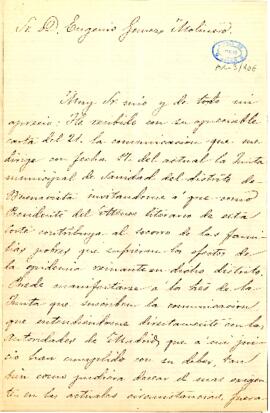 Sr. D. Eugenio Gomez Molinero.
AR-3/106
Muy Sr mio y de todo mi
aprecio: He recibido con su apreciable
carta del 21. la comunicacion que me
dirige con fecha 17. del actual la Junta
municipal de Sanidad del distrito de
Buenavista invitandome á que como
Presidente del Ateneo literario de esta
Corte contribuya al socorro de las fami-
lias pobres que sufrieran los efectos de
la epidemia reinante en dicho distrito.
Puede manifestarse á los Sres de la
Junta que suscriben la comunicacion
que entendiendome directamente con las
Autoridades de Madrid, que á mi jui-
cio han cumplido con su deber, tam
bien como pudiera desear el mas exigen
te en las actuales circunstancias, fuera